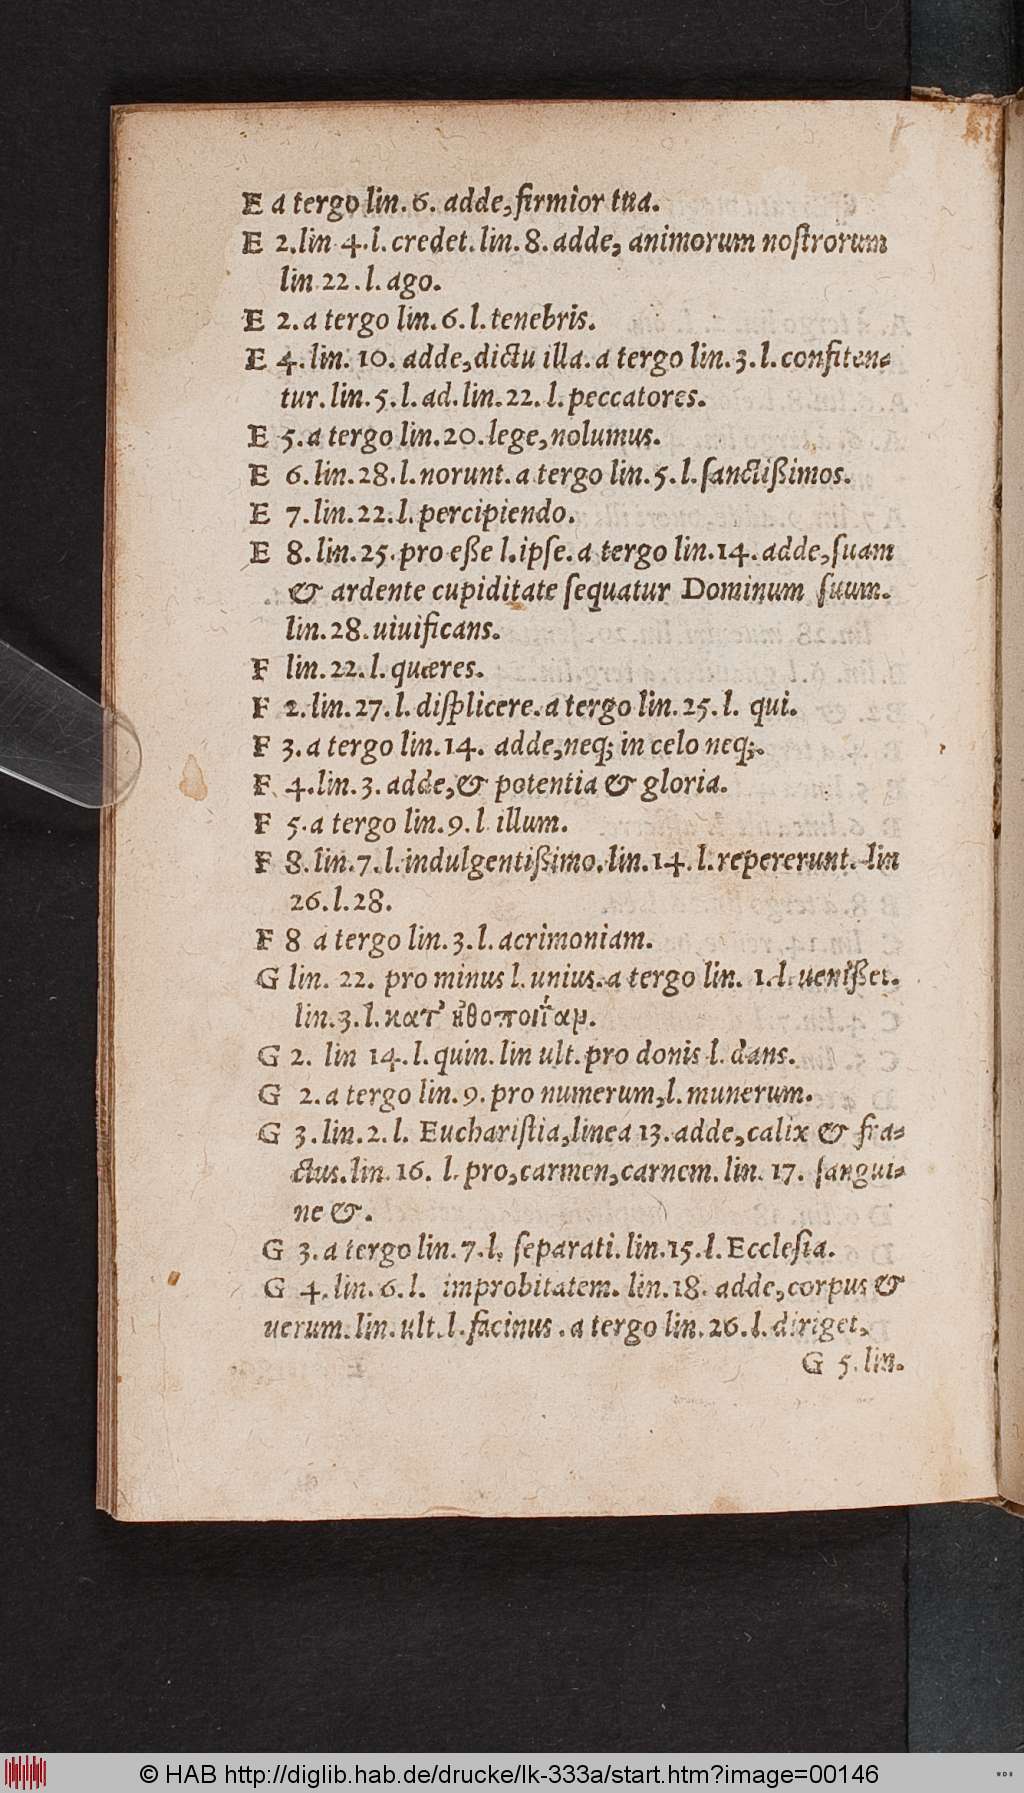 E a tergo lin. 6. adde, firmior tua.
E 2. lin 4. l. credet. lin. 8. adde, animorum noſtrorum
lin 22. l. ago.
E 2. a tergo lin. 6. l. tenebris.
E 4. lin. 10. adde, dictu illa. a tergo lin. 3. l. confiten-
tur. lin. 5. l. ad. lin. 22. l. peccatores.
E 5. a tergo lin. 20. lege, nolumus.
E 6. lin. 28. l. norunt. a tergo lin. 5. l. ſanctißimos.
E 7. lin. 22. l. percipiendo.
E 8. lin. 25. pro eße l. ipſe. a tergo lin. 14. adde, ſuam
& ardente cupiditate ſequatur Dominum ſuum.
lin. 28. uiuificans.
F lin. 22. l. quæres.
F 2. lin. 27. l. diſplicere. a tergo lin. 25. l. qui.
F 3. a tergo lin. 14. adde, neq; in celo neq;.
F 4. lin. 3. adde, & potentia & gloria.
F 5. a tergo lin. 9. l illum.
F 8. lin. 7. l. indulgentißimo. lin. 14. l. repererunt. lin
26. l. 28.
F 8 a tergo lin. 3. l. acrimoniam.
G lin. 22. pro minus l. unius. a tergo lin. 1. l. uenißet.
lin. 3. l. κατ' ἠθοποιΐαν.
G 2. lin 14. l. quin. lin ult. pro donis l. dans.
G 2. a tergo lin. 9. pro numerum, l. munerum.
G 3. lin. 2. l. Euchariſtia, linea 13. adde, calix & fra-
ctus. lin. 16. l. pro, carmen, carnem. lin. 17. ſangui-
ne &.
G 3. a tergo lin. 7. l. ſeparati. lin. 15. l. Eccleſia.
G 4. lin. 6. l. improbitatem. lin. 18. adde, corpus &
uerum. lin. ult. l. facinus. a tergo lin. 26. l. diriget,
G 5. lin.
© HAB http://diglib.hab.de/drucke/lk-333a/start.htm?image=00146